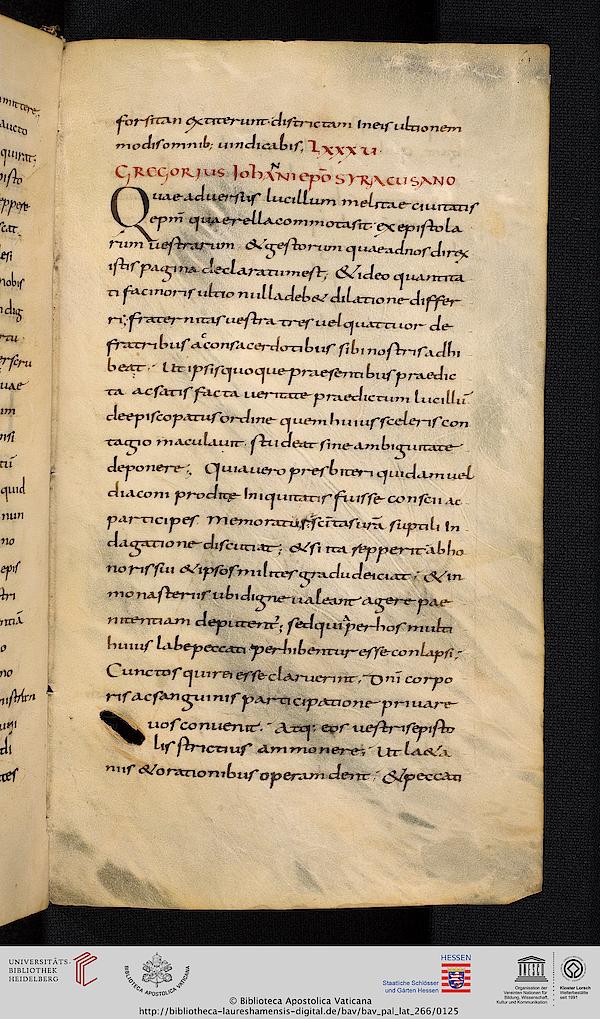 forsitan extiterunt districtam In eis ultionem
modis omnib; uindicabis. LXXXVI
GREGORIUS IohANNI epō SYRACUSANO
Quae aduersus lucillum melitae ciuitatis
epm̄ quaerella commota sit ex epistola
rum uestrarum & gestorum quae ad nos direx
istis pagina declaratum est; & ideo quantita
ti facinoris ultio nulla deb& dilatione differ
ri; fraternitas uestra tres uel quattuor de
fratribus ac consacerdotibus sibi nostris adhi
beat. Ut ipsis quoque praesentibus praedic
ta ac satis facta ueritate praedictum lucillū
de episcopatus ordine quem huius sceleris con
tagio maculauit studeat sine ambiguitate
deponere; Quia uero presbiteri quidam uel
diaconi prodite Iniquitatis fuisse conscii ac
participes memoratur scītas urā suptili In
dagatione discutiat; & si ita reppererit ab ho
noris sui & ipsos milites gradu deiciat; & in
monasteriis ubi digne ualeant agere pae
nitentiam deputent; sed qui per hos multi
huius labe peccati perhibentur esse conlapsi;
Cunctos qui rei esse claruerint. Dn̄i corpo
ris ac sanguinis participatione priuare
uos conuenit. Atq; eos uestris episto
lis strictius ammonere; Ut la&a
niis & orationibus operam dent; & peccati
mittere
aucto
quirat
isto
eppere
cat
esi
nobis
dig
rtu
uae
im
nsi
tū
quid
nun
no
epis
tri
ntiā
o
no
di
tes
UNIVERSITÄTS-
BIBLIOTHEK
HEIDELBERG
BIBLIOTECA APOSTOLICA VATICANA
HESSEN
Staatliche Schlösser
und Gärten Hessen
Organisation der
Vereinten Nationen für
Bildung, Wissenschaft,
Kultur und Kommunikation
Kloster Lorsch
Welterbestätte
seit 1991
© Biblioteca Apostolica Vaticana
http://bibliotheca-laureshamensis-digital.de/bav/bav_pal_lat_266/0125